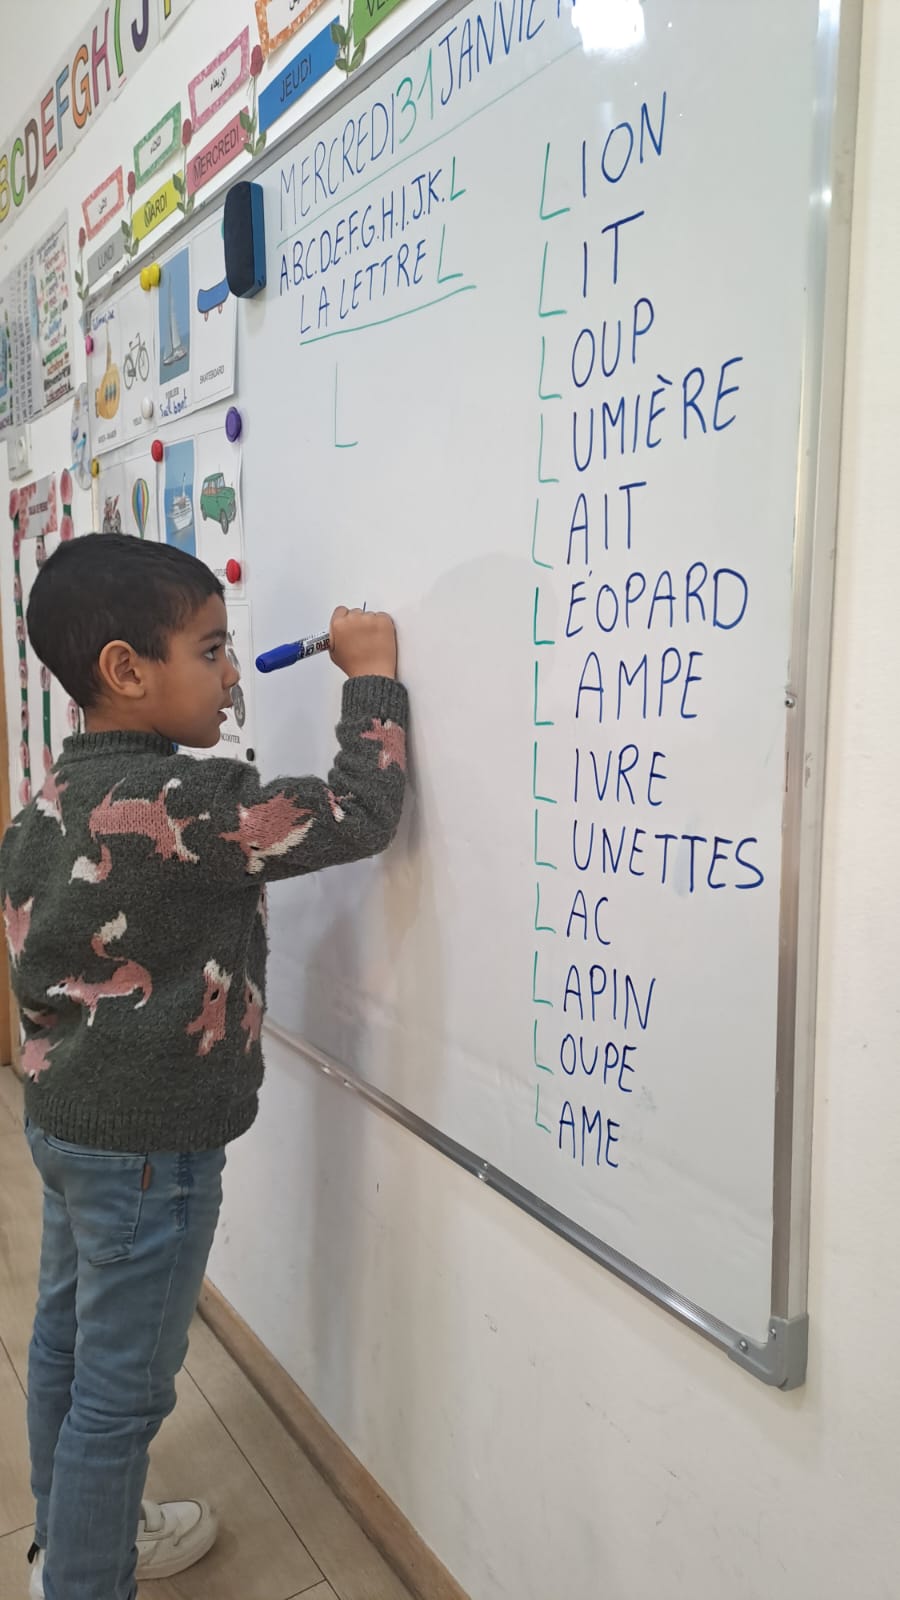 BCDEFGHIJ
LUNDI
MARDI
MERCREDI
JEUDI
الأربعاء
MERCREDI 31 JANVIE
A.B.C.D.E.F.G.H.I.J.K.L
LA LETTRE L
L
LION
LIT
LOUP
LUMIÈRE
LAIT
LÉOPARD
LAMPE
LIVRE
LUNETTES
LAC
LAPIN
LOUPE
LAME
VELO
Sail boat
SKATEBOARD
SCOOTER